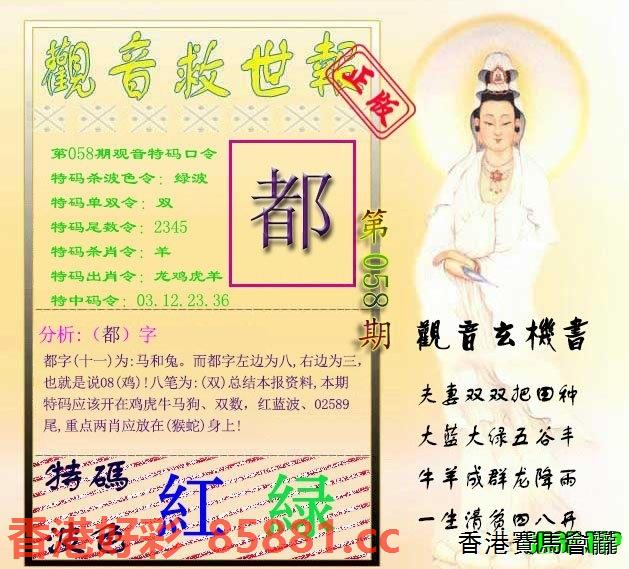 觀音救世報
正版
第058期观音特码口令
特码杀波色令：绿波
特码单双令：双
特码尾数令：2345
特码杀肖令：羊
特码出肖令：龙鸡虎羊
特中码令：03.12.23.36
都
第058期
分析:（都）字
都字(十一)为:马和兔。而都字左边为八,右边为三,
也就是说08(鸡)!八笔为:(双)总结本报资料,本期
特码应该开在鸡虎牛马狗、双数，红蓝波、02589
尾,重点两肖应放在(猴蛇)身上!
觀音玄機書
夫妻双双把田种
大蓝大绿五谷丰
牛羊成群龙降雨
一生清贫四八开
特碼
波色
紅 绿
香港好彩 85881.cc
香港賽馬會